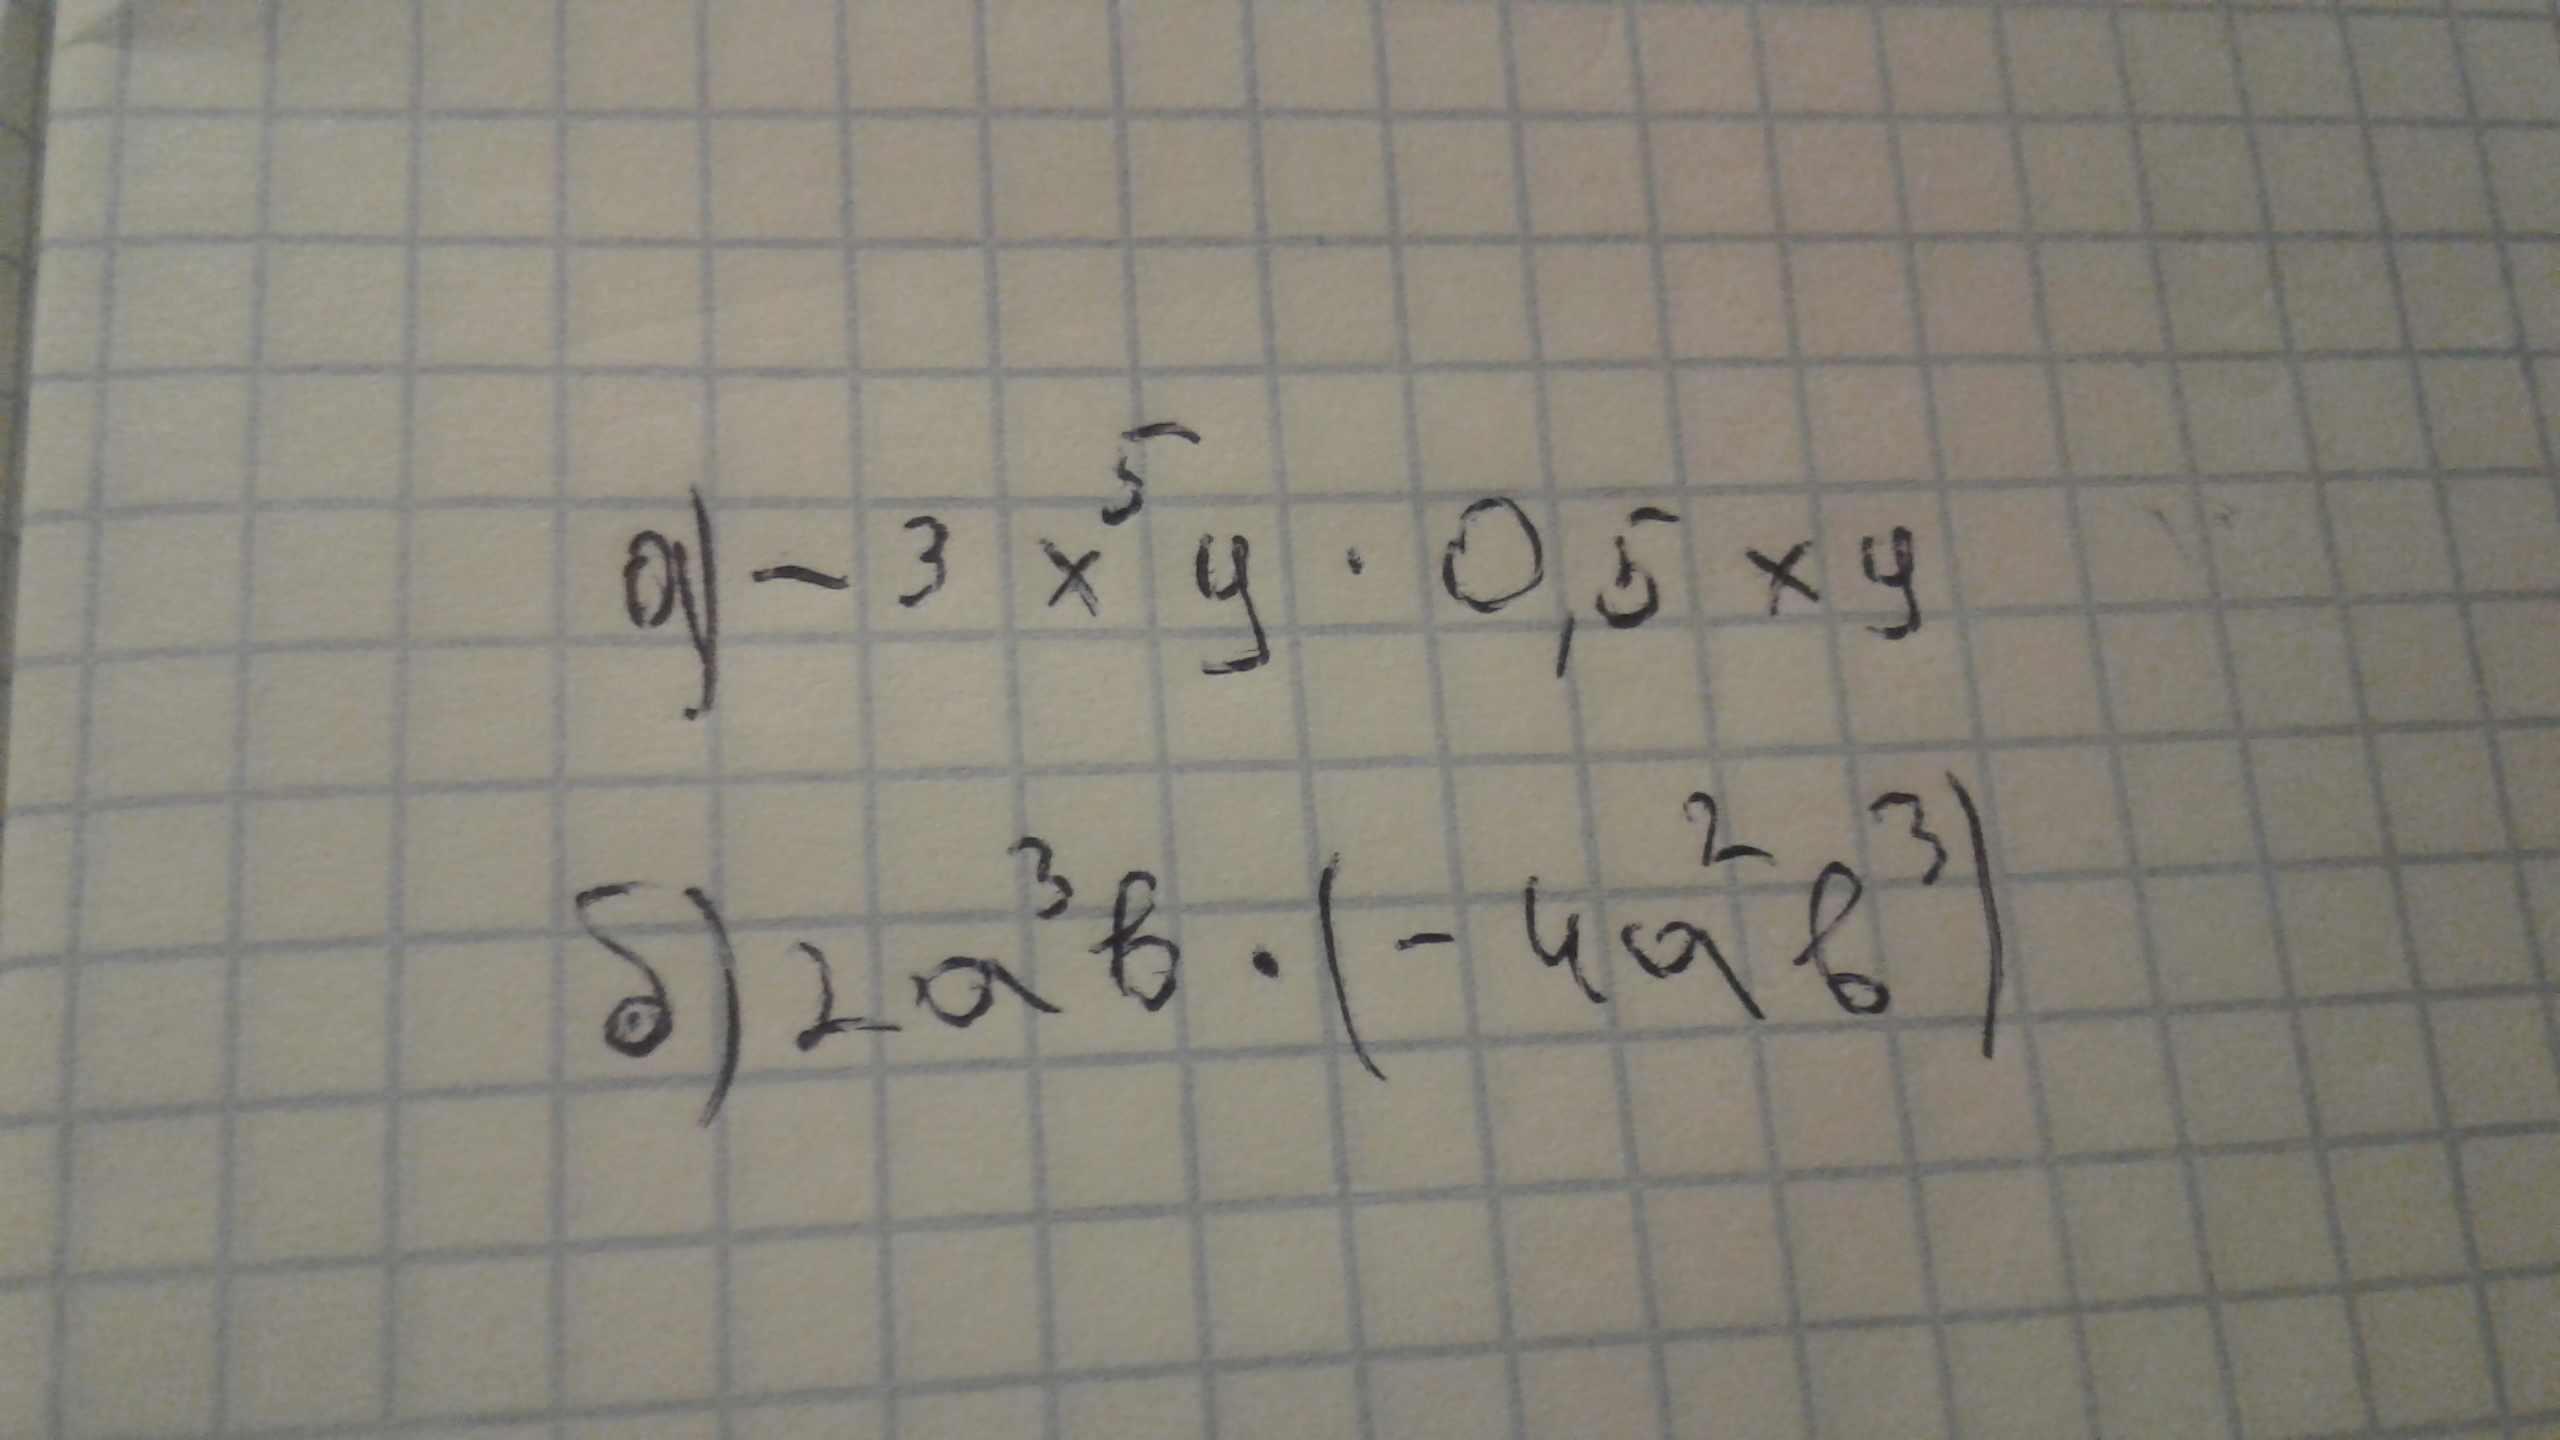 а) - 3 x⁵ y · 0,5 x y
б) 2a³b · (- 4a²b³)